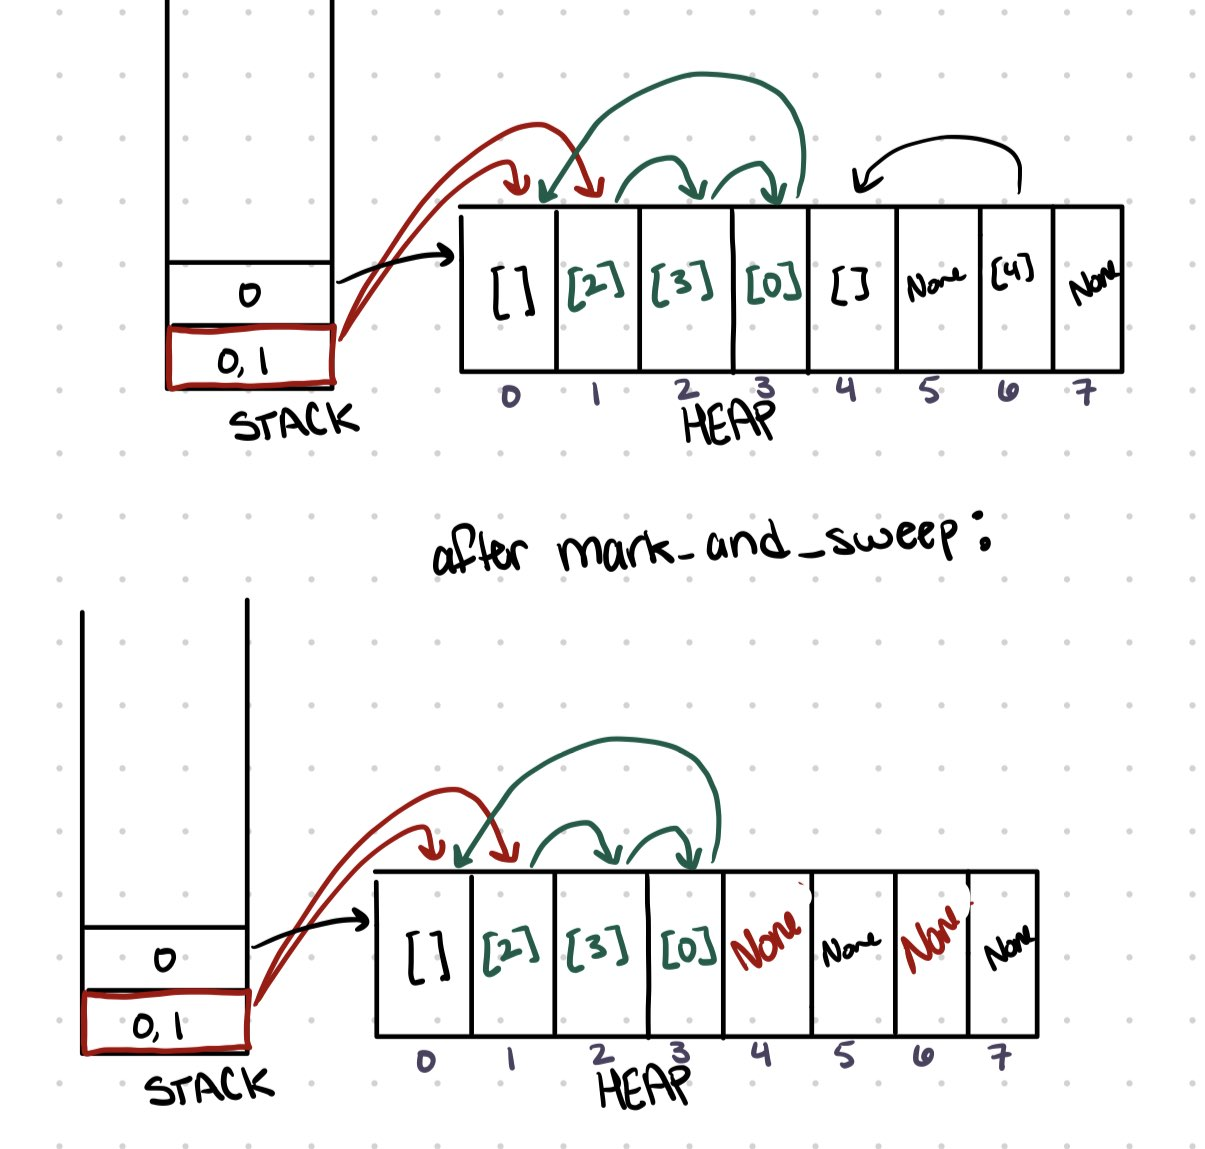 0
0, 1
STACK
[] [2] [3] [0] [] None [4] None
0 1 2 3 4 5 6 7
HEAP
after mark_and_sweep:
0
0, 1
STACK
[] [2] [3] [0] None None None None
0 1 2 3 4 5 6 7
HEAP